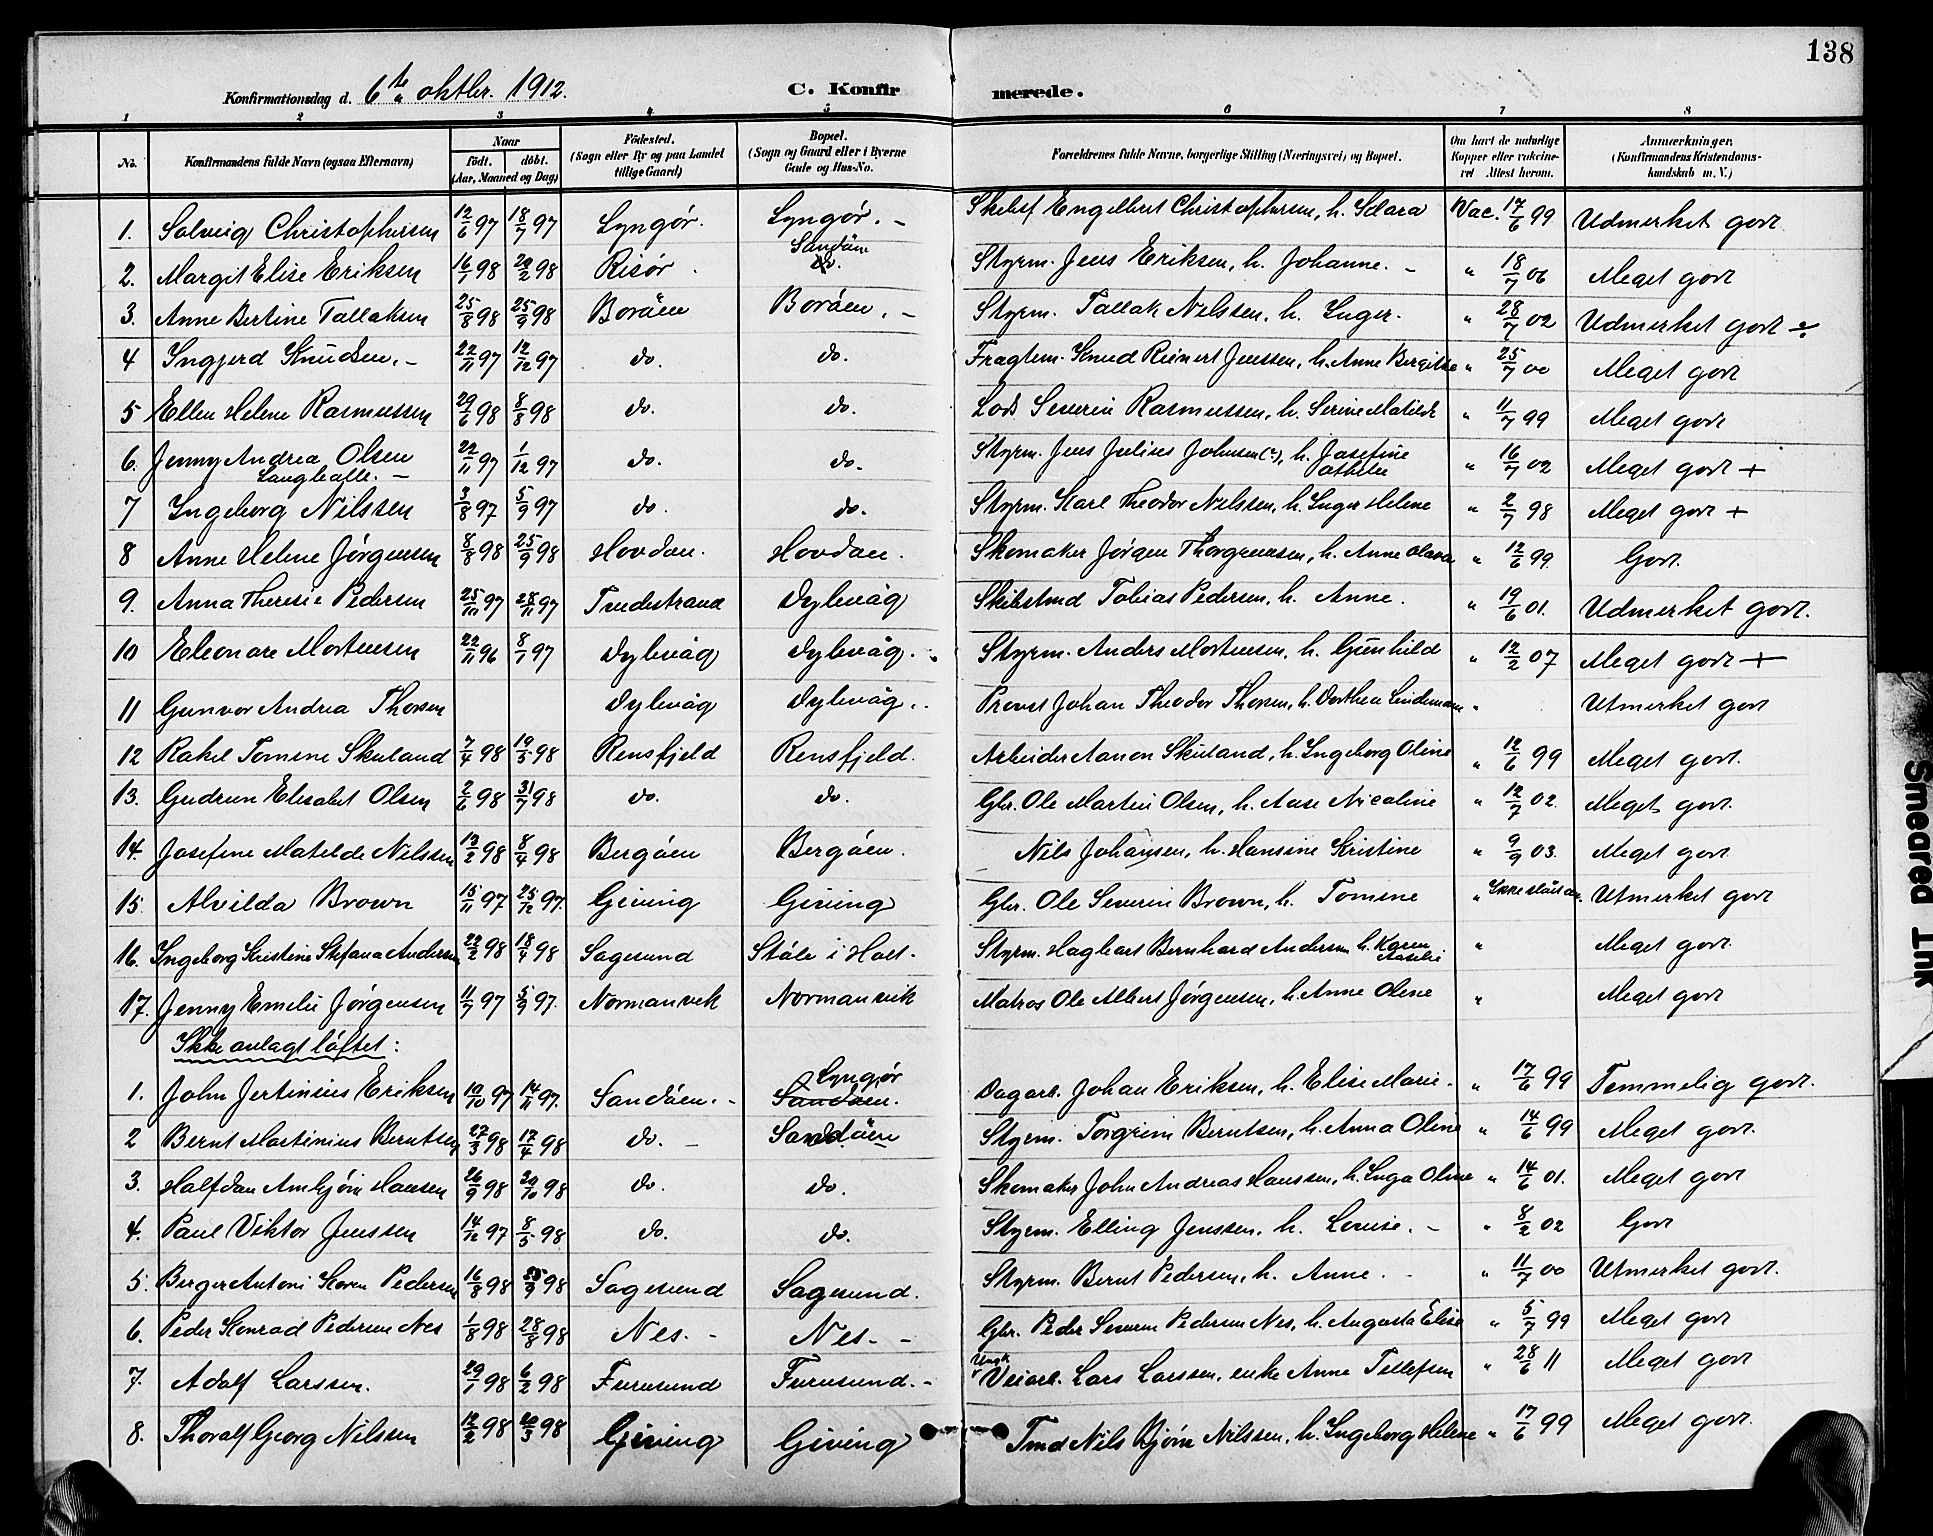 138
Konfirmationsdag d. 6te oktbr. 1912. C. Konfirmerede.
1 2 3 4 5 6 7 8
No. Konfirmandens fulde Navn (ogsaa Efternavn) Naar födt. döbt. (Aar, Maaned og Dag) Födested. (Sogn eller By og paa Landet tillige Gaard) Bopæl. (Sogn og Gaard eller i Byerne Gade og Hus-No. Forældrenes fulde Navne, borgerlige Stilling (Næringsvei) og Bopæl. Om havt de naturlige Kopper eller vakcineret Attest herom. Anmærkninger. (Konfirmandens Kristendomskundskab m. V.)
1. Solveig Christophersen 12/6 97 18/7 97 Lyngör. Lyngör. – Engelbret Christophersen, h. Klara Vac. 17/6 99 Udmerket godt
2. Margit Elise Eriksen 16/1 98 20/2 98 Risör. Sandöen do. Styrm. Jens Eriksen, h. Johanne. – " 18/7 06 Meget godt
3. Anne Bertine Tallaksen 25/8 98 25/9 98 Boröen Boröen. – Styrm. Tallak Nilssen, h. Inger. " 28/7 02 Udmerket godt ÷
4 Ingjerd Knudsen. – 22/11 97 12/12 97 do. do. Fragtem. Knud Reinert Jenssen, h. Anne Bergitte " 25/7 00 Meget godt
5 Ellen Helene Rasmussen 29/6 98 8/8 98 do. do. Lods Severin Rasmussen, h. Serine Matilde " 11/7 99 Meget godt
6. Jenny Andrea Olsen Langballe. – 22/11 97 1/12 97 do. do. Styrm. Jens Julius Johnsen (?), h. Josefine " 16/7 02 Meget godt +
7 Ingeborg Nilssen 3/8 97 5/9 97 do. do. Styrm. Karl Theodor Nilssen, h. Inger Helene " 2/7 98 Meget godt +
8 Anne Helene Jörgensen 8/8 98 25/9 98 Hovdan. Hovdan. Skomaker Jörgen Thorgrensen, h. Anne Olava " 12/6 99. Godt.
9. Anna Therese Pedersen 25/10 97 28/11 97 Tvedestrand Dybvåg Skibstmd Tobias Pedersen, h. Anne. " 19/6 01. Udmerket godt.
10 Eleonore Mortensen 22/11 96 8/1 97 Dybvåg Dybvåg. Styrm. Anders Mortensen, h. Gunhild " 12/2 07 Meget godt +
11 Gunvor Andrea Thorsen Dybvåg Dybvåg. Provst Johan Theodor Thorsen, h. Dorthea Lindemann " Utmerket godt
12 Rakel Tomine Skuland 7/4 98 19/5 98 Rensfjeld Rensfjeld. Arbeider Aanon Skuland, h. Ingeborg Oline " 12/6 99 Meget godt.
13. Gudrun Elisabet Olsen 2/6 98 31/7 98 do. do. Gbr. Ole Martin Olsen, h. Aase Nicoline " 12/7 02. Meget godt.
14. Josefine Matilde Nilssen 12/2 98 8/4 98 Bergöen Bergöen. Nils Johansen, h. Hansine Kristine " 9/9 03. Meget godt
15. Alvilda Brown 15/11 97 25/12 97. Giving Giving Gbr. Ole Severin Brown, h. Tomine " Utmerket godt
16. Ingeborg Kristine Stefana Andersen 22/2 98 18/4 98 Sagesund Ståle i Holt. Styrm. Hagbart Bernhard Andersen h. Karen " Meget godt.
17. Jenny Emelie Jörgensen 11/7 97 5/9 97. Normanvik Normanvik Matros Ole Albert Jörgensen, h. Anne Olene " Meget godt
Ikke avlagt löftet:
1. John Jertinius Eriksen 10/10 97 14/11 97. Sandöen. – Lyngör Sandöen. Dagarb. Johan Eriksen, h. Elise Marie. " 17/6 99 Temmelig godt.
2 Bernt Martinius Berntsen 27/3 98 17/4 98 do. – Sandöen Styrm. Torgrim Berntsen, h. Anna Oline " 14/6 99 Meget godt.
3. Halfdan Arnbjörn Hansen 26/9 98 20/10 98 do. do. Skomaker John Andreas Hanssen, h. Inga Oline " 14/6 01. Meget godt
4. Paul Viktor Jenssen 14/12 97 8/5 98 do. do. Styrm. Elling Jenssen, h. Louise. – " 8/2 02 Godt
5. Berger Antoni Koren Pedersen 16/8 98 25/9 98 Sagesund Sagesund. Styrm. Bernt Pedersen, h. Anne. – " 11/7 00 Utmerket godt.
6. Peder Konrad Pedersen Nes 1/8 98 28/8 98 Nes. – Nes. – Gbr. Peder Severin Pedersen Nes, h. Augusta Elise " 5/7 99 Meget godt
7. Adolf Larssen. 29/1 98 6/2 98 Furusund Furusund. – Veiarb. Lars Larssen, enke Anne Tellefsen " 28/6 11 Meget godt
8. Thoralf Georg Nilssen 12/2 98 20/3 98 Giving Giving Tmd Nils Björn Nilssen, h. Ingeborg Helene " 17/6 99 Meget godt.
Smeared Ink